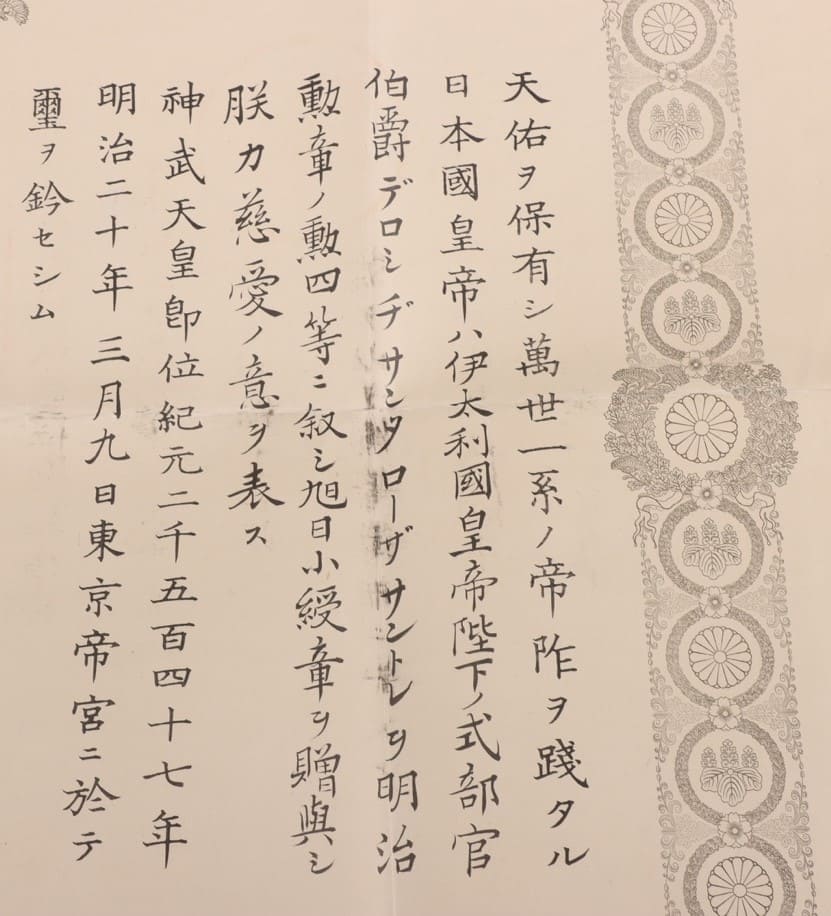 天佑ヲ保有シ萬世一系ノ帝阼ヲ踐タル
日本國皇帝ハ伊太利國皇帝陛下ノ式部官
伯爵デロシヂサンタローザサントレヲ明治
勲章ノ勲四等ニ叙シ旭日小綬章ヲ贈與シ
朕カ慈愛ノ意ヲ表ス
神武天皇卽位紀元二千五百四十七年
明治二十年三月九日東京帝宮ニ於テ
璽ヲ鈐セシム